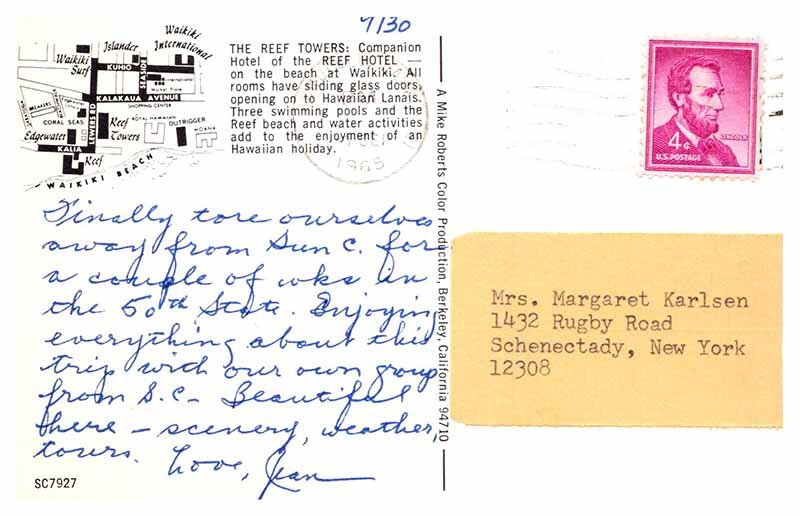 7/30
Waikiki
International
Islander
Waikiki
Surf
KUHIO
SEASIDE
International
Market Place
KALAKAUA AVENUE
SHOPPING CENTER
BREAKERS
CORAL SEAS
Edgewater
LEWERS RD
Reef
Towers
ROYAL HAWAIIAN
OUTRIGGER
MOANA
KALIA
Reef
WAIKIKI BEACH
THE REEF TOWERS: Companion
Hotel of the REEF HOTEL —
on the beach at Waikiki. All
rooms have sliding glass doors,
opening on to Hawaiian Lanais.
Three swimming pools and the
Reef beach and water activities
add to the enjoyment of an
Hawaiian holiday.
1965
Finally tore ourselves
away from Sun C. for
a couple of wks in
the 50th State. Enjoying
everything about this
trip with our own group
from S.C. – Beautiful
here – scenery, weather,
tours. Love, Jean
SC7927
A Mike Roberts Color Production, Berkeley, California 94710
LINCOLN
4¢
U.S. POSTAGE
Mrs. Margaret Karlsen
1432 Rugby Road
Schenectady, New York
12308